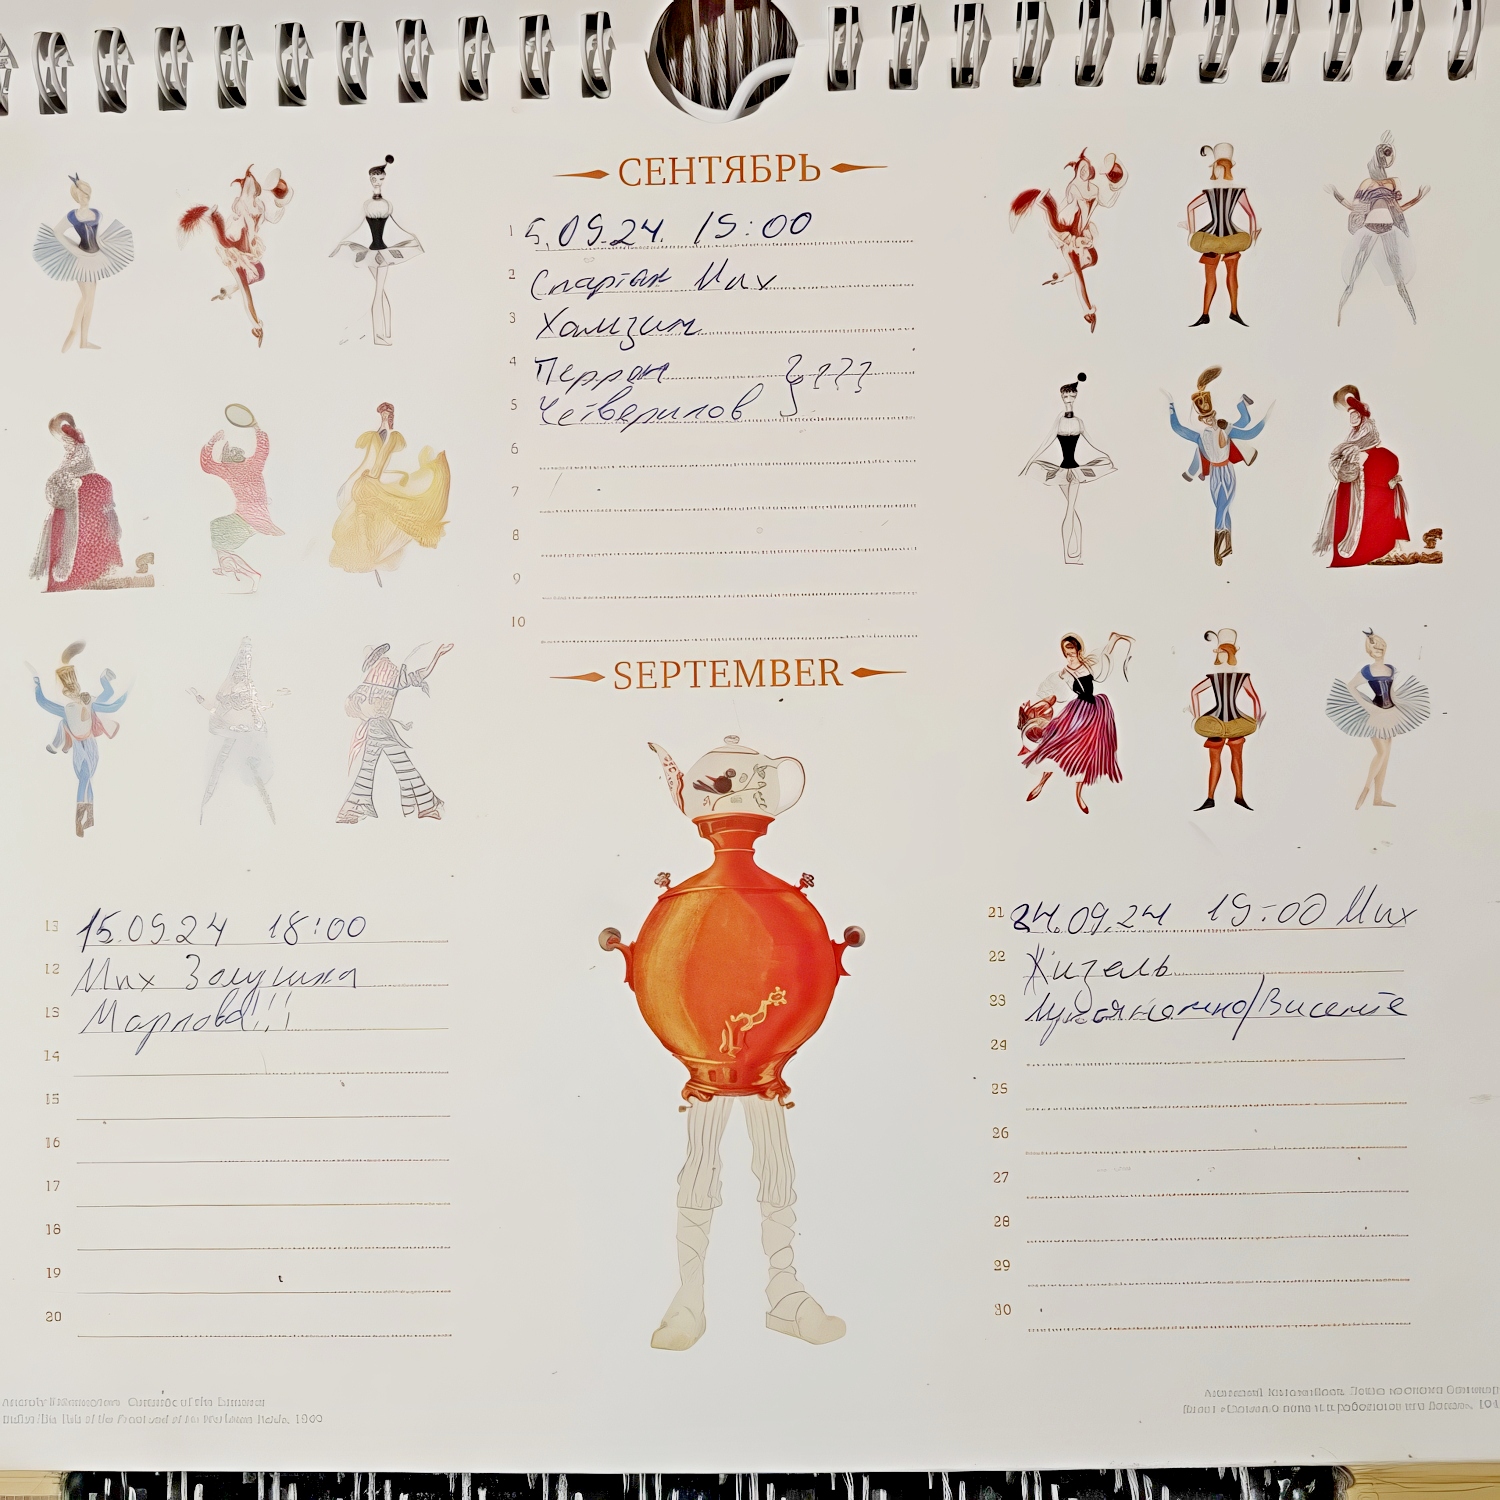 СЕНТЯБРЬ
1 5.09.24. 19:00
2 Спартак Мих
3 Хамзин
4 Перрен
5 Четвериков }???
6
7
8
9
10
SEPTEMBER
15.09.24 18:00
12 Мих Золушка
13 Маркова!!!
14
15
16
17
18
19
20
21 24.09.24 19:00 Мих
22 Жизель
23 Лукьяненко/Висенте
24
25
26
27
28
29
30